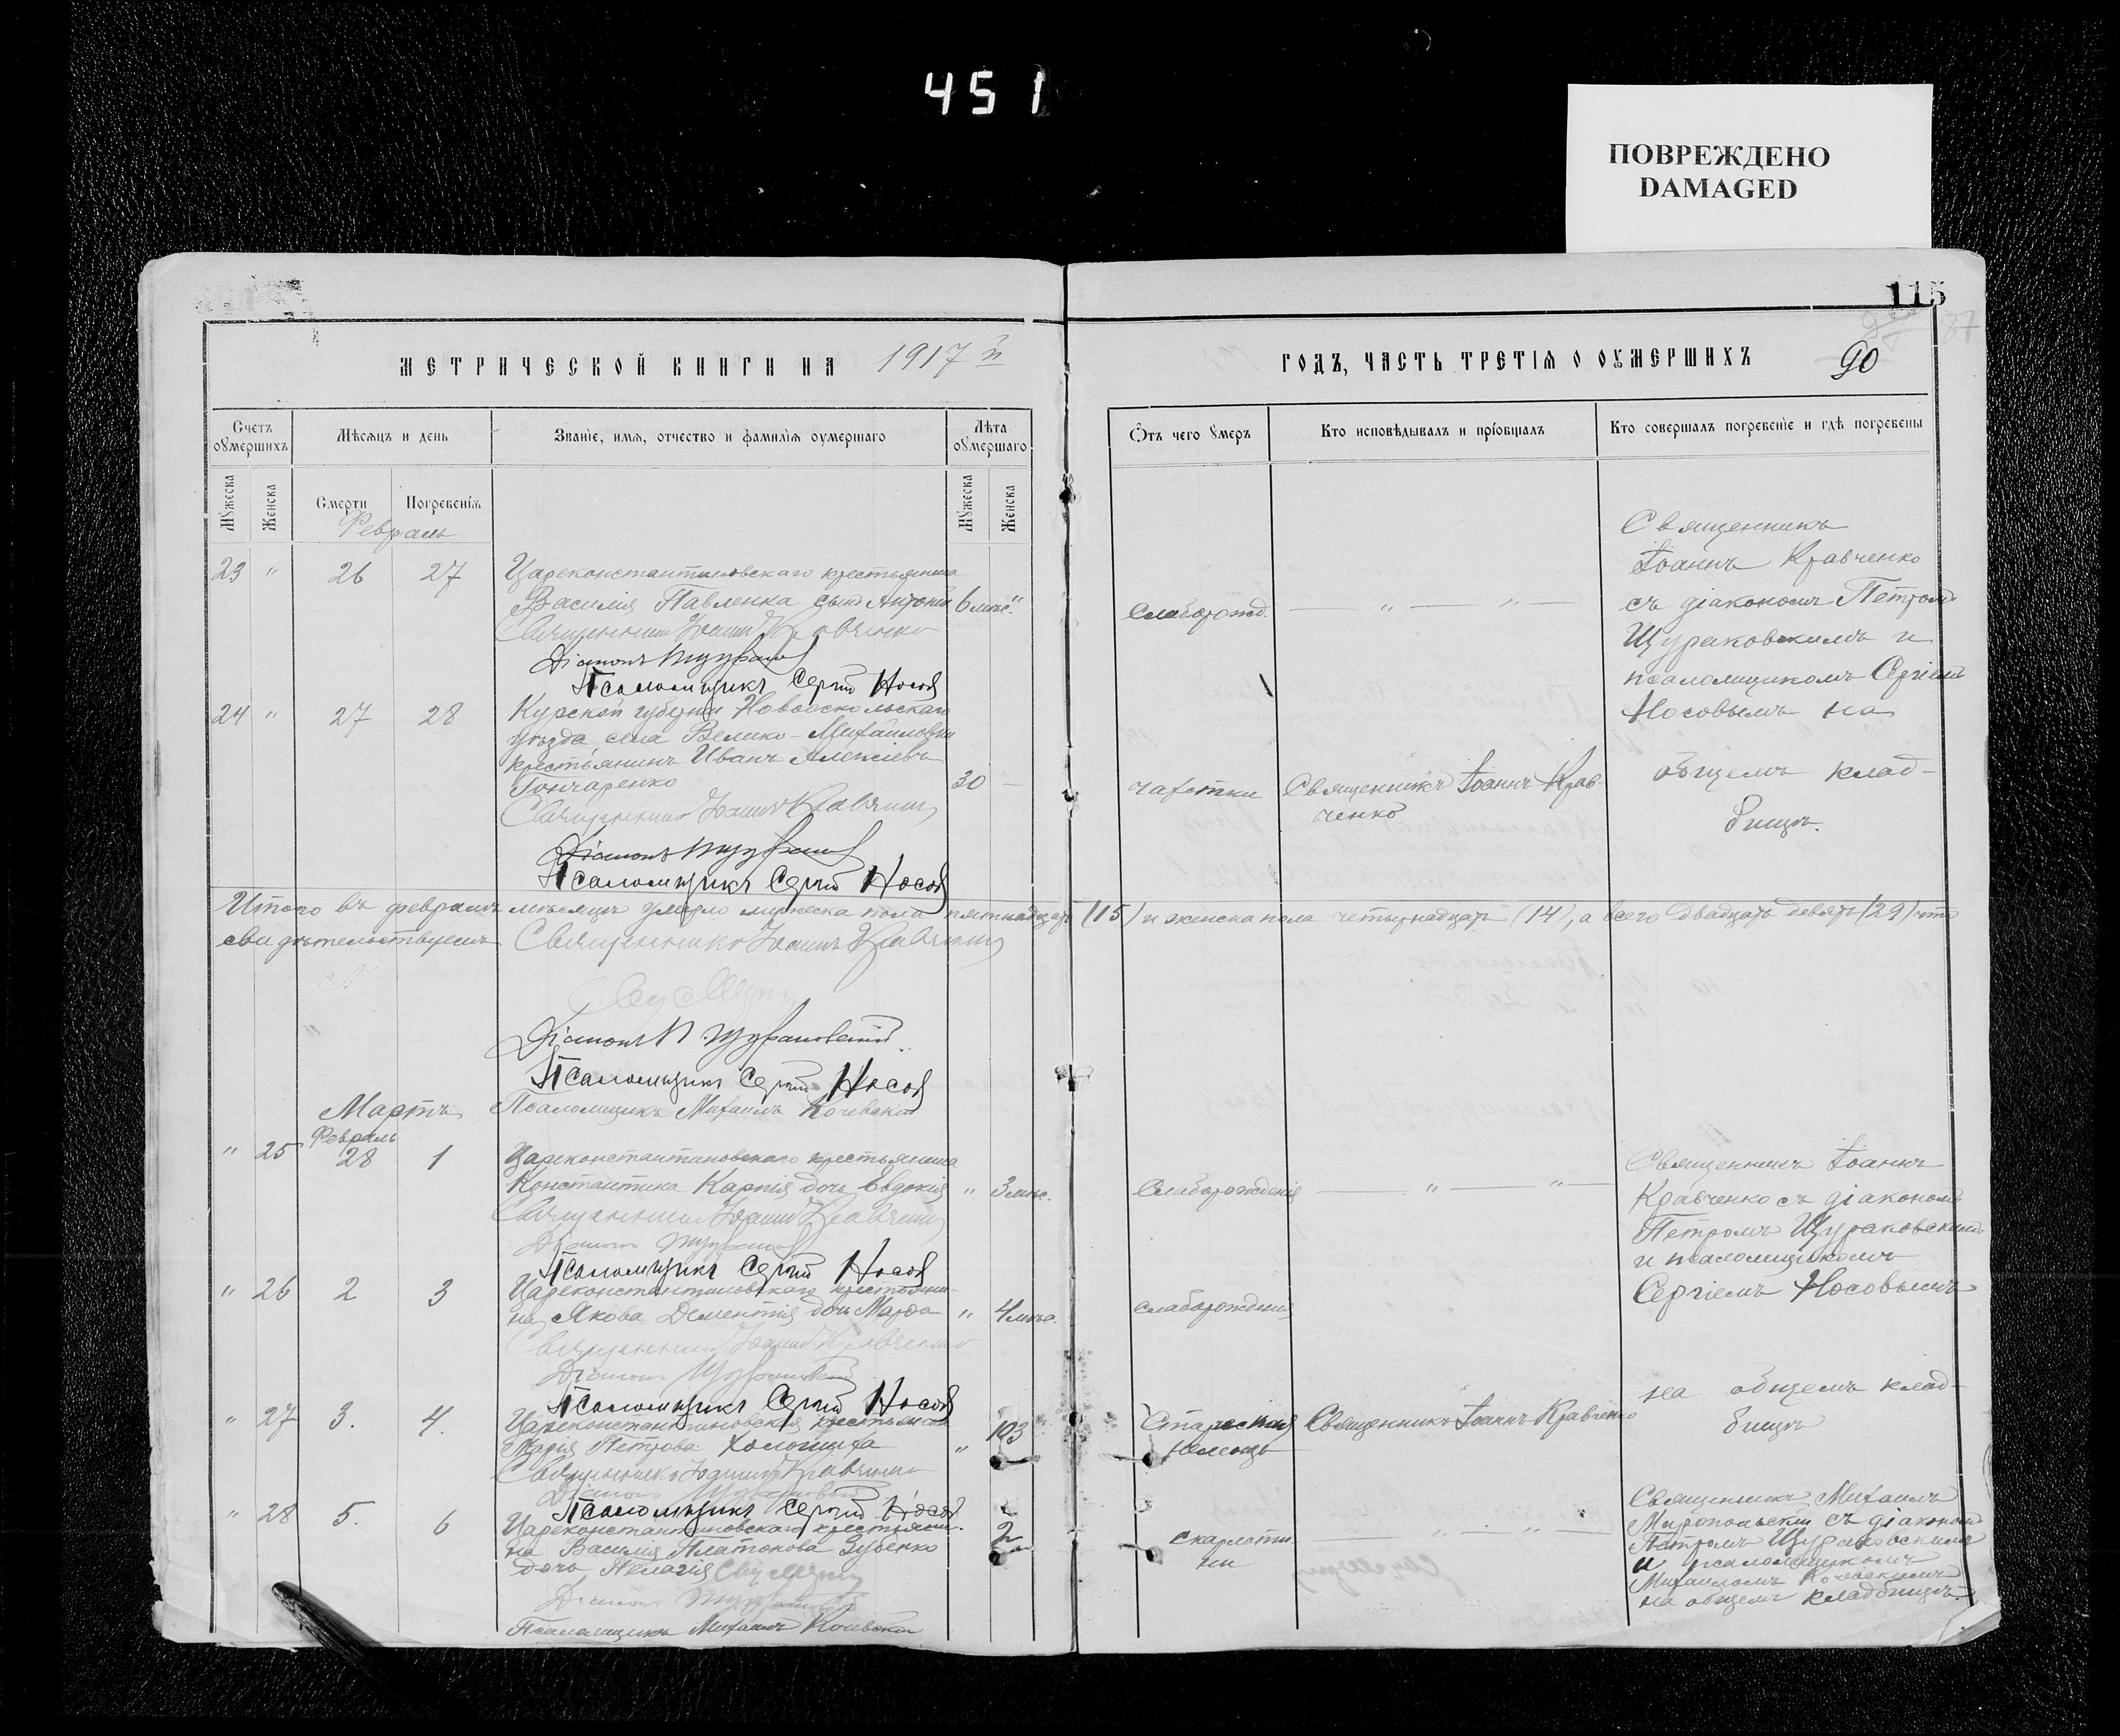 451
ПОВРЕЖДЕНО
DAMAGED
115
МЕТРИЧЕСКОЙ КНИГИ НА 1917 й
ГОДЪ, ЧАСТЬ ТРЕТІЯ О ОУМЕРШИХЪ
90
Счетъ оумершихъ
Мѣсяцъ и день
Званіе, имя, отчество и фамилія оумершаго
Лѣта оумершаго
Отъ чего умеръ
Кто исповѣдывалъ и пріобщалъ
Кто совершалъ погребеніе и гдѣ погребены
Мужеска
Женска
Смерти
Погребенія
Мужеска
Женска
Февраль
23 " 26 27 Цареконстантиновскаго крестьянина
Василія Павленка сынъ Антоній 6 мѣс. "
Священникъ Іоаннъ Кравченко
Діаконъ Щураковскій
Псаломщикъ Сергій Носов
Слаборожд. — " — " —
Священникъ
Іоаннъ Кравченко
съ діакономъ Петромъ
Щураковскимъ и
псаломщикомъ Сергіемъ
Носовымъ на
общемъ клад-
бищѣ.
24 " 27 28 Курской губерніи Новооскольскаго
уѣзда, села Велико-Михайловки
крестьянинъ Иванъ Алексіевъ
Гончаренко 30 —
Священникъ Іоаннъ Кравченко
Діаконъ Щураковскій
Псаломщикъ Сергій Носов
чахотки
Священникъ Іоаннъ Крав-
ченко
Итого въ февралѣ мѣсяцѣ умерло мужеска пола пятнадцать (15) и женска пола четырнадцать (14), а всего двадцать девять (29) что
свидѣтельствуемъ Священникъ Іоаннъ Кравченко
Діаконъ П. Щураковскій
Псаломщикъ Сергій Носов
Псаломщикъ Михаилъ Кочевскій
Мартъ
Февраль
" 25 28 1 Цареконстантиновскаго крестьянина
Константина Карпія дочь Евдокія " 3 мѣс.
Священникъ Іоаннъ Кравченко
Діаконъ Щураковскій
Псаломщикъ Сергій Носов
Слаборожденія — " — " —
Священникъ Іоаннъ
Кравченко съ діакономъ
Петромъ Щураковскимъ
и псаломщикомъ
Сергіемъ Носовымъ
на общемъ клад-
бищѣ
" 26 2 3 Цареконстантиновскаго крестьяни-
на Якова Дементія дочь Марфа " 4 мѣс.
Священникъ Іоаннъ Кравченко
Діаконъ Щураковскій
Псаломщикъ Сергій Носов
слаборожденія
" 27 3. 4. Цареконстантиновская крестьянка
Марія Петрова " 103
Священникъ Іоаннъ Кравченко
Діаконъ Щураковскій
Псаломщикъ Сергій Носов
Старческая
немощь
Священникъ Іоаннъ Кравченко
" 28 5. 6 Цареконстантиновскаго крестьяни-
на Василія Платонова Зубенко 2
дочь Пелагія
Діаконъ Щураковскій
Псаломщикъ Михаилъ Кочевскій
скарлати
ны
" — " —
Священникъ Михаилъ
Миропольскій съ діакономъ
Петромъ Щураковскимъ
и псаломщикомъ
Михаиломъ Кочевскимъ
на общемъ кладбищѣ.